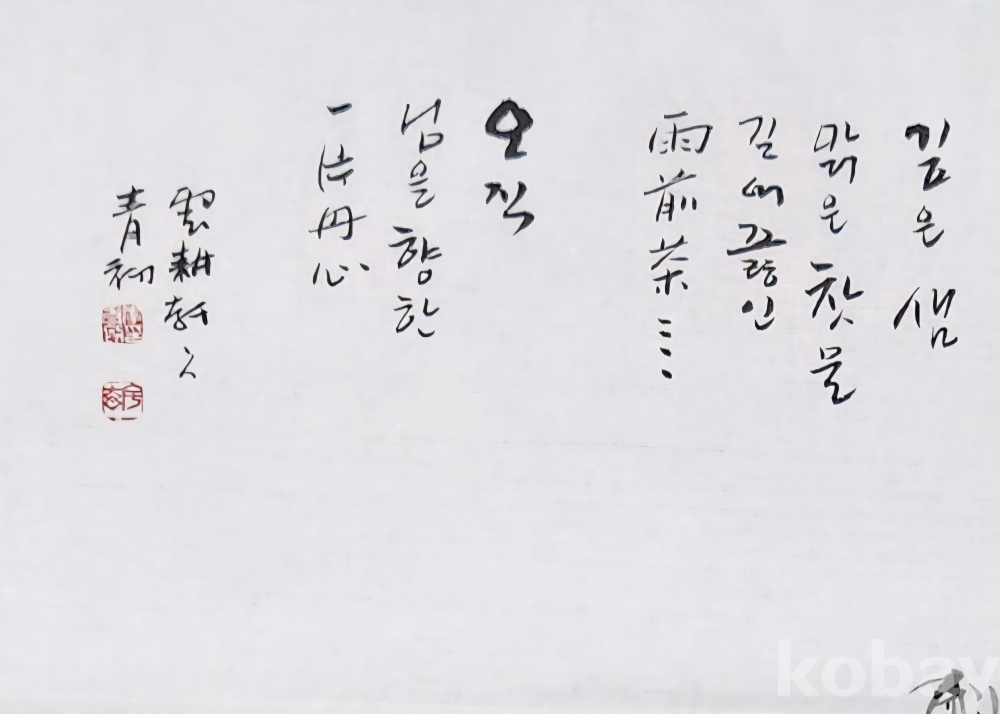 깊은 샘
맑은 찻물
길어 끓인
雨前茶
오직
님을 향한
一片丹心
耕軒
青
kobay